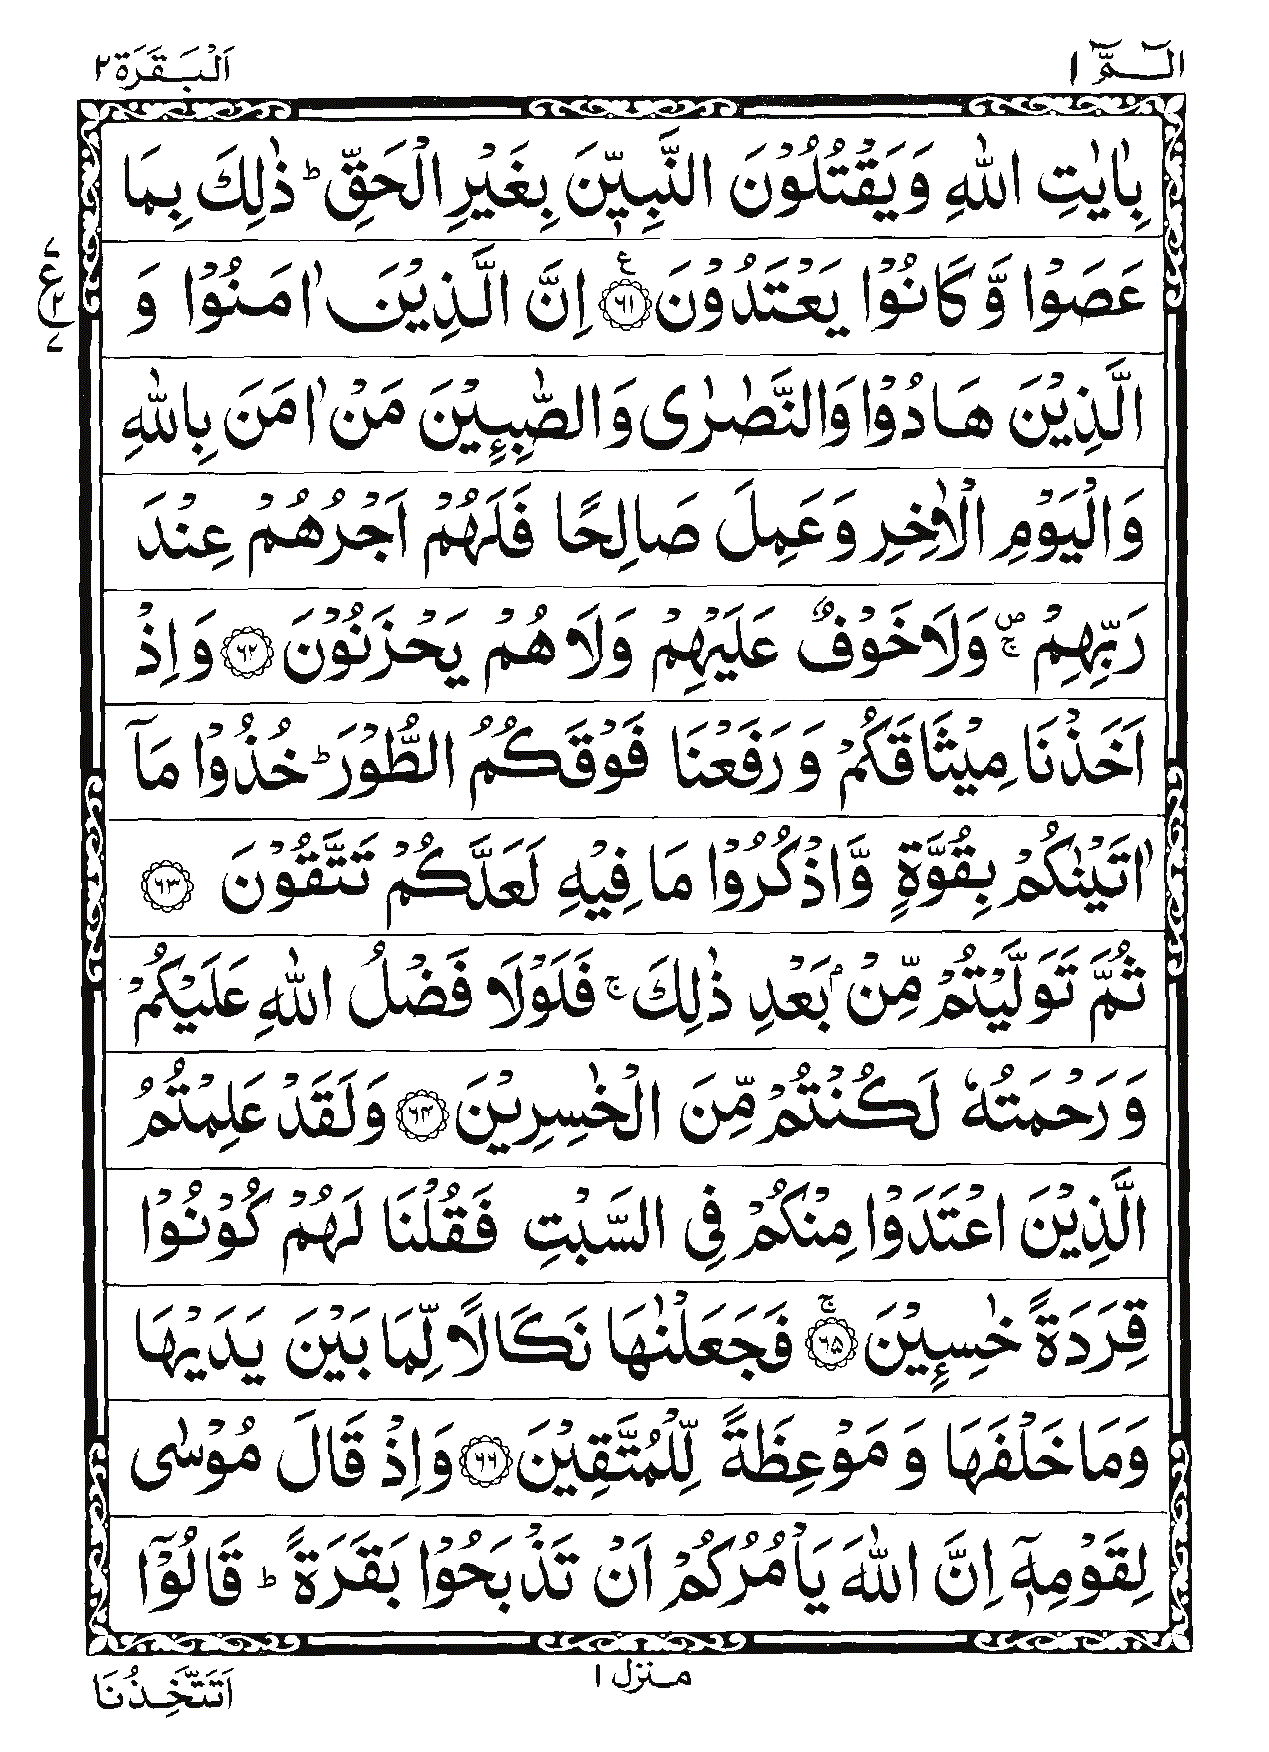 الٓـمّٓ ١
اَلْبَقَرَة ٢
بِاٰيٰتِ اللّٰهِ وَيَقْتُلُوْنَ النَّبِيّٖنَ بِغَيْرِ الْحَقِّ ؕ ذٰلِكَ بِمَا
عَصَوْا وَّكَانُوْا يَعْتَدُوْنَ ۝٦١ ع اِنَّ الَّذِيْنَ اٰمَنُوْا وَ
الَّذِيْنَ هَادُوْا وَالنَّصٰرٰى وَالصّٰبِـِٕيْنَ مَنْ اٰمَنَ بِاللّٰهِ
وَالْيَوْمِ الْاٰخِرِ وَعَمِلَ صَالِحًا فَلَهُمْ اَجْرُهُمْ عِنْدَ
رَبِّهِمْ ۪ۚ وَلَا خَوْفٌ عَلَيْهِمْ وَلَا هُمْ يَحْزَنُوْنَ ۝٦٢ وَاِذْ
اَخَذْنَا مِيْثَاقَكُمْ وَرَفَعْنَا فَوْقَكُمُ الطُّوْرَ ؕ خُذُوْا مَآ
اٰتَيْنٰكُمْ بِقُوَّةٍ وَّاذْكُرُوْا مَا فِيْهِ لَعَلَّكُمْ تَتَّقُوْنَ ۝٦٣
ثُمَّ تَوَلَّيْتُمْ مِّنْۢ بَعْدِ ذٰلِكَ ۚ فَلَوْلَا فَضْلُ اللّٰهِ عَلَيْكُمْ
وَرَحْمَتُهٗ لَكُنْتُمْ مِّنَ الْخٰسِرِيْنَ ۝٦٤ وَلَقَدْ عَلِمْتُمُ
الَّذِيْنَ اعْتَدَوْا مِنْكُمْ فِى السَّبْتِ فَقُلْنَا لَهُمْ كُوْنُوْا
قِرَدَةً خٰسِـِٕيْنَ ۝٦٥ ۚ فَجَعَلْنٰهَا نَكَالًا لِّمَا بَيْنَ يَدَيْهَا
وَمَا خَلْفَهَا وَ مَوْعِظَةً لِّلْمُتَّقِيْنَ ۝٦٦ وَاِذْ قَالَ مُوْسٰى
لِقَوْمِهٖٓ اِنَّ اللّٰهَ يَاْمُرُكُمْ اَنْ تَذْبَحُوْا بَقَرَةً ؕ قَالُوْٓا
منزل ١
اَتَتَّخِذُنَا